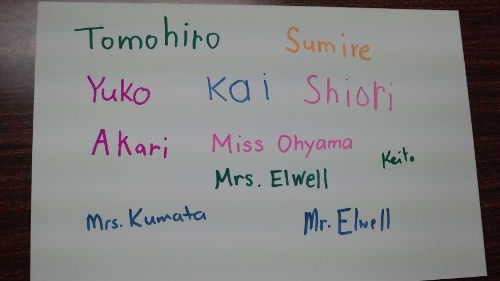 Tomohiro Sumire
Yuko Kai Shiori
Akari Miss Ohyama
Mrs. Elwell Keito
Mrs. Kumata Mr. Elwell